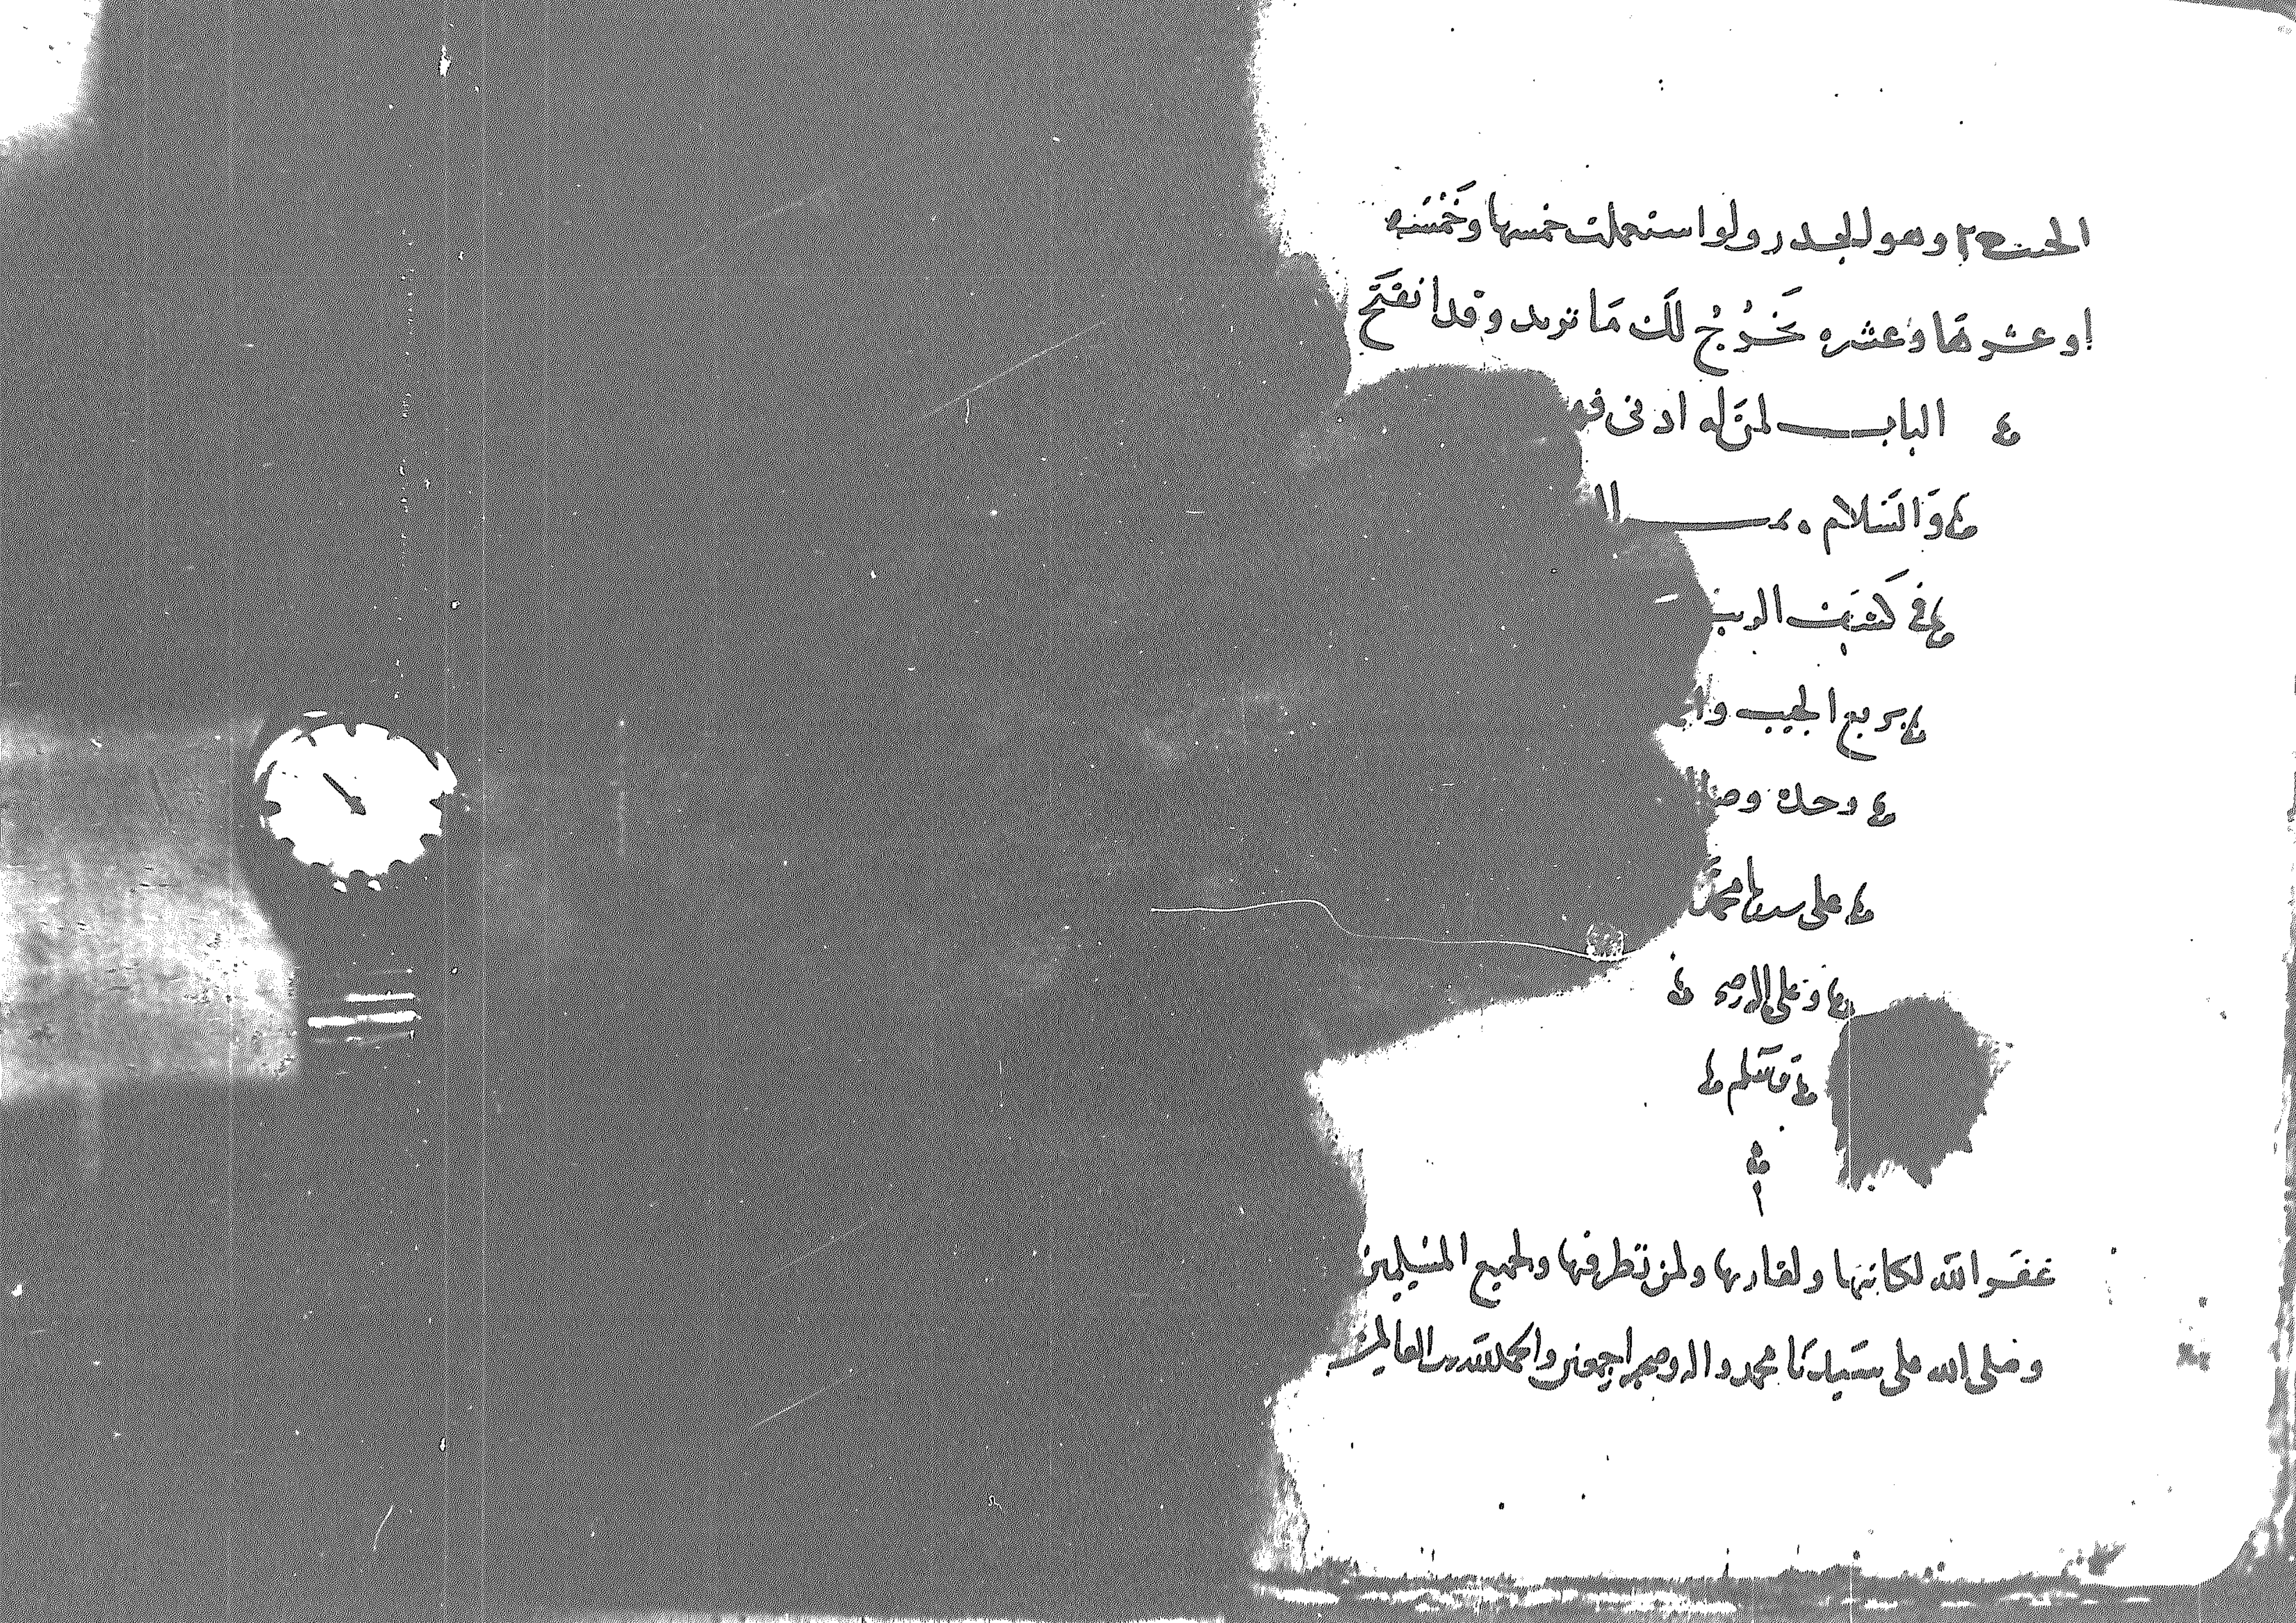 وهو الجدر ولو استعملت خمسها وخمسه
او عشرها وعشره يخرج لك ما تريد وقد انفتح
الباب لمن له ادنى
والسلام
في كيفية
بربع الجيب
وحده
على سيدنا محمد
وعلى اله وصحبه
وسلم
غفر الله لكاتبها ولقاريها ولمن نظر فيها ولجميع المسلمين
وصلى الله على سيدنا محمد واله وصحبه اجمعين والحمد لله رب العالمين